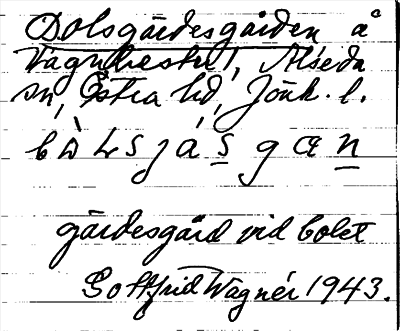 Bolsgärdesgården å
Vagnhester, Alseda
sn, Östra hd, Jönk. l.
gärdesgård vid bolet
Gottfrid Wagnér 1943.